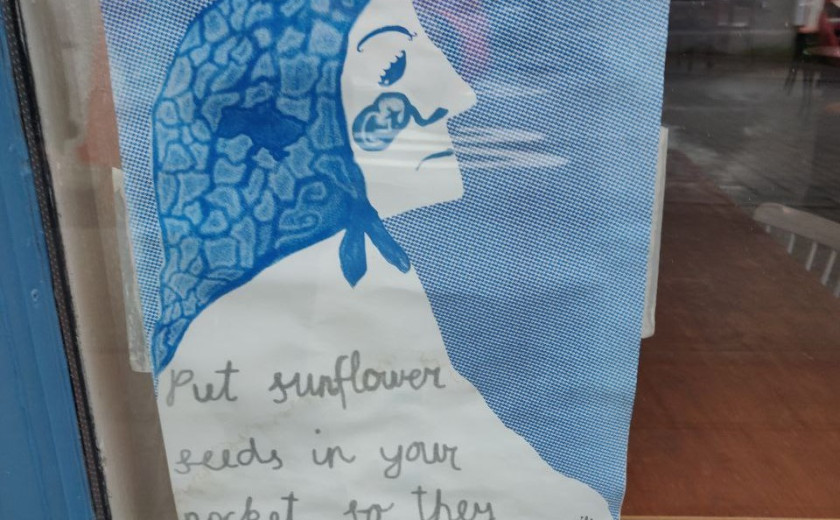 Put sunflower
seeds in your
pocket so they